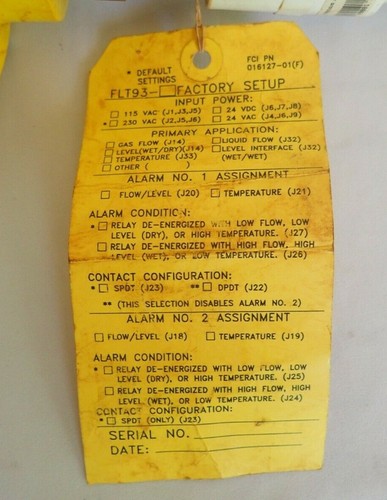 FCI PN
016127-01(F)
* DEFAULT
SETTINGS
FLT93-□FACTORY SETUP
INPUT POWER:
□ 115 VAC (J1,J3,J5) □ 24 VDC (J6,J7,J8)
*□ 230 VAC (J2,J5,J6) □ 24 VAC (J4,J6,J9)
PRIMARY APPLICATION:
□ GAS FLOW (J14) □ LIQUID FLOW (J32)
□ LEVEL(WET/DRY)(J14) □ LEVEL INTERFACE (J32)
□ TEMPERATURE (J33) (WET/WET)
□ OTHER ( )
ALARM NO. 1 ASSIGNMENT
□ FLOW/LEVEL (J20) □ TEMPERATURE (J21)
ALARM CONDITION:
* □ RELAY DE-ENERGIZED WITH LOW FLOW, LOW
LEVEL (DRY), OR HIGH TEMPERATURE. (J27)
□ RELAY DE-ENERGIZED WITH HIGH FLOW, HIGH
LEVEL (WET), OR LOW TEMPERATURE. (J26)
CONTACT CONFIGURATION:
* □ SPDT (J23) **□ DPDT (J22)
** (THIS SELECTION DISABLES ALARM NO. 2)
ALARM NO. 2 ASSIGNMENT
□ FLOW/LEVEL (J18) □ TEMPERATURE (J19)
ALARM CONDITION:
* □ RELAY DE-ENERGIZED WITH LOW FLOW, LOW
LEVEL (DRY), OR HIGH TEMPERATURE. (J25)
□ RELAY DE-ENERGIZED WITH HIGH FLOW, HIGH
LEVEL (WET), OR LOW TEMPERATURE. (J24)
CONTACT CONFIGURATION:
* □ SPDT (ONLY) (J23)
SERIAL NO.
DATE: